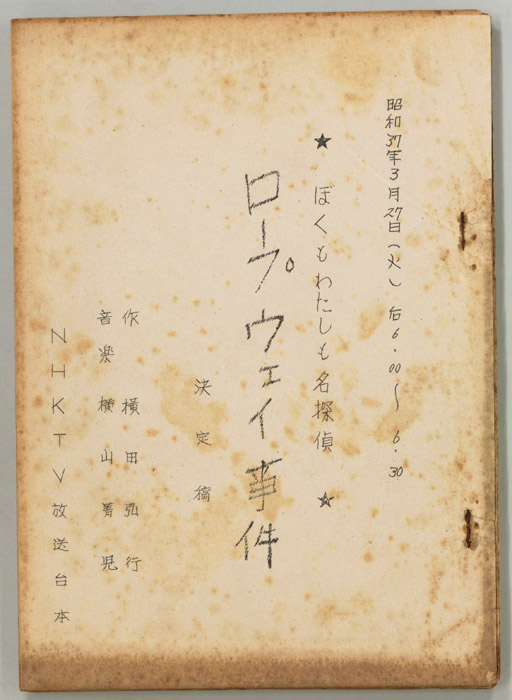 昭和37年3月27日(火) 后6.00〜6.30
★ ぼくもわたしも名探偵 ★
ロープウェイ事件
決定稿
作 横田弘行
音楽 横山菁児
NHKTV放送台本